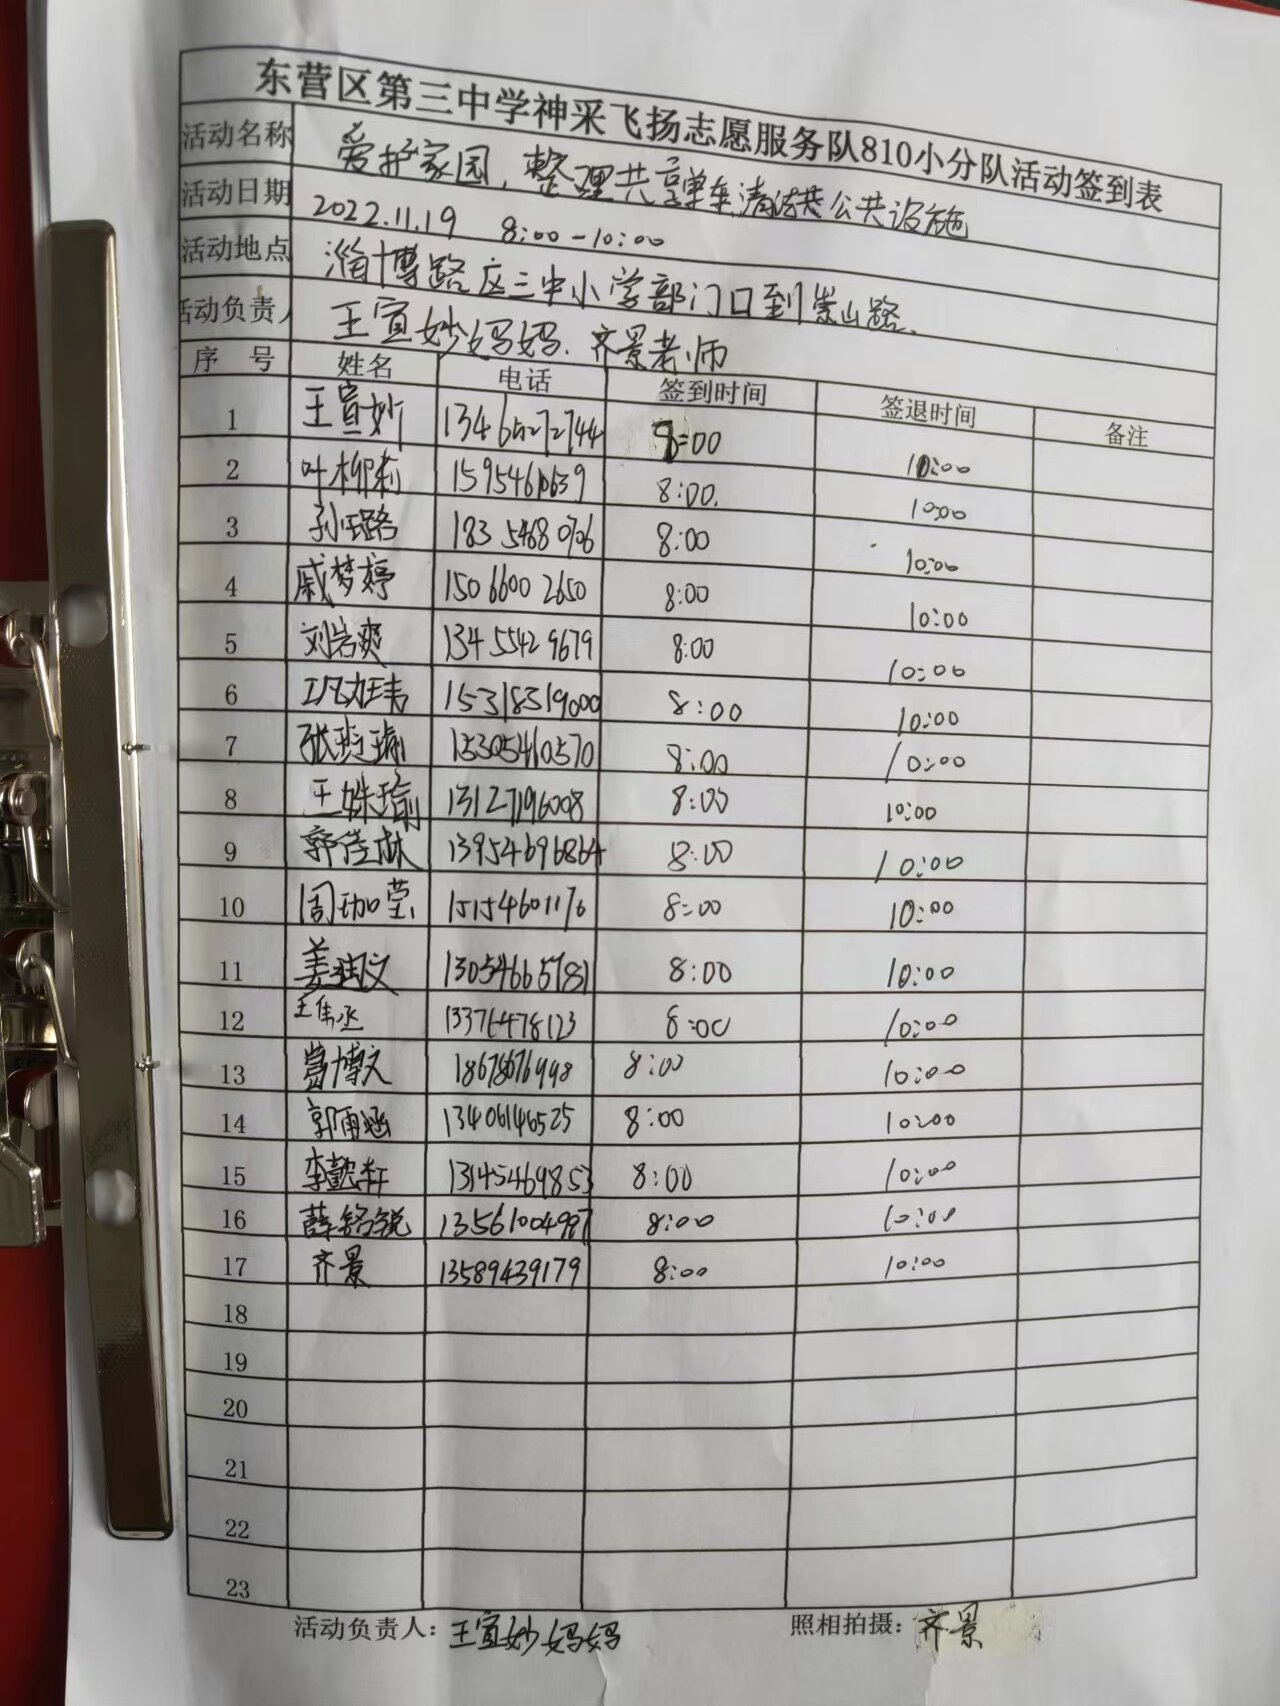 东营区第三中学神采飞扬志愿服务队810小分队活动签到表
活动名称 爱护家园,整理共享单车,清洁公共设施
活动日期 2022.11.19 8:00-10:00
活动地点 淄博路区三中小学部门口到嵩山路.
活动负责人 王宣妙妈妈. 齐景老师
序 号 姓名 电话 签到时间 签退时间 备注
1 王宣妙 13465272744 8:00 10:00
2 叶柳莉 15954610639 8:00. 10:00
3 孙珞 183 5468 0706 8:00 10:00
4 戚梦婷 150 6600 2650 8:00 10:00
5 刘岩爽 134 5542 9679 8:00 10:00
6 15318319000 8:00 10:00
7 张琁瑜 15305460570 8:00 10:00
8 王姝瑜 13127196008 8:00 10:00
9 郭佳林 13954696864 8:00 10:00
10 周珈莹 15154601176 8:00 10:00
11 姜润文 13054665781 8:00 10:00
12 王隽丞 13376478123 8:00 10:00
13 博文 18678676998 8:00 10:00
14 郭雨涵 13406146525 8:00 10:00
15 李懿轩 13145469853 8:00 10:00
16 薛铭锐 13561004987 8:00 10:00
17 齐景 13589439179 8:00 10:00
18
19
20
21
22
23
活动负责人: 王宣妙妈妈 照相拍摄: 齐景